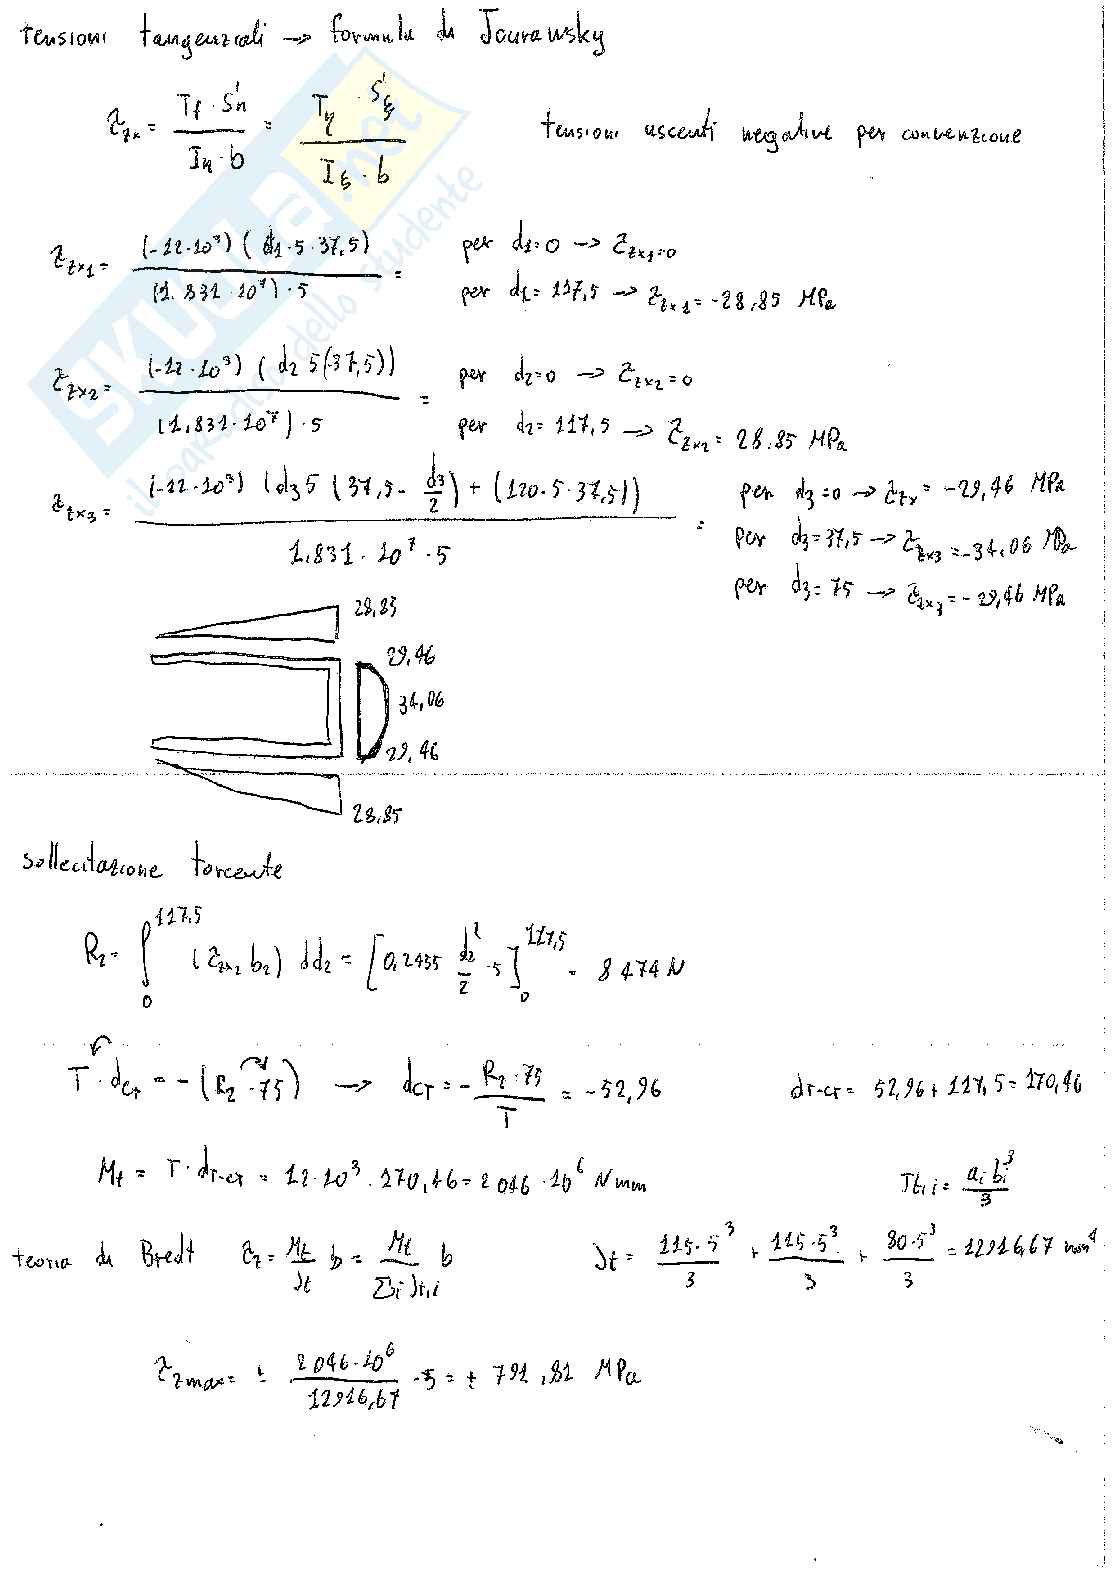 tensioni tangenziali → formula di Jourawsky
τzx = Tξ · S'η / Iη · b = Tη · S'ξ / Iξ · b
tensioni uscenti negative per convenzione
τzx1 = (-12·10³) (d1·5·37,5) / (1.831·10⁷)·5 =
per d1=0 → τzx1=0
per d1=117,5 → τzx1=-28,85 MPa
τzx2 = (-12·10³) (d2 5(-37,5)) / (1,831·10⁷)·5 =
per d2=0 → τzx2=0
per d2=117,5 → τzx2=28.85 MPa
τzx3 = (-12·10³) (d3 5 (37,5 - d3/2) + (120·5·37,5)) / 1,831·10⁷·5 =
per d3=0 → τzx = -29,46 MPa
per d3=37,5 → τzx3=-34,06 MPa
per d3=75 → τzx3=-29,46 MPa
28,85
29,46
34,06
29,46
28,85
sollecitazione torcente
R2 = ∫₀^117,5 (τzx2 b2) dd2 = [0,2455 d2²/2 ·5]₀^117,5 = 8474 N
T·dcT = -(R2·75) → dcT = - R2·75 / T = -52,96
dT-cT = 52,96+117,5=170,46
Mt = T·dT-cT = 12·10³·170,46=2.046·10⁶ Nmm
Jt,i = ai bi³ / 3
teoria di Bredt τz = Mt/Jt b = Mt / Σi Jt,i b
Jt = 115·5³/3 + 115·5³/3 + 80·5³/3 = 12916,67 mm⁴
τzmax = ± 2.046·10⁶ / 12916,67 ·5 = ± 791,81 MPa
SKUOLA.net
il paradiso dello studente